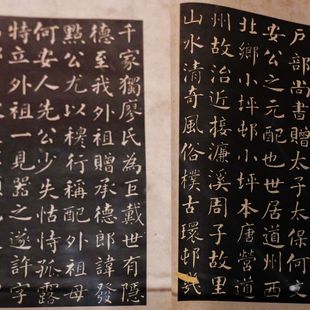 戶部尚書贈太子太保何文
安公之元配也世居道州西
北鄉小坪邨小坪本唐營道
州故治近接濂溪周子故里
山水清奇風俗樸古環邨
千家獨廖氏為巨戴世有隱
德至我外祖贈承德郎諱發
點公尤以穆行稱配外祖母
何安人先公少失怙恃孤露
特立外祖一見器之遂許字